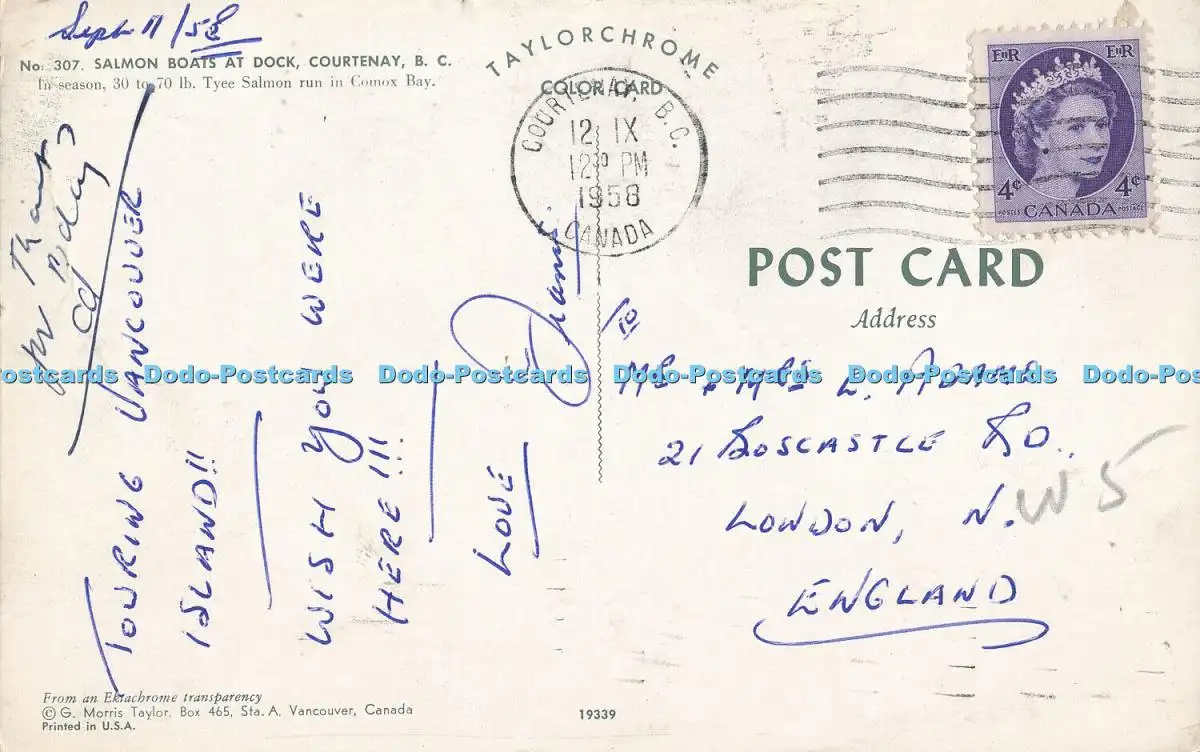 Sept 11/58
No. 307. SALMON BOATS AT DOCK, COURTENAY, B. C.
In season, 30 to 70 lb. Tyee Salmon run in Comox Bay.
TAYLORCHROME
COLOR CARD
COURTENAY, B.C.
12 IX
12 30 PM
1958
CANADA
EIIR EIIR
4¢ 4¢
POSTES CANADA POSTAGE
POST CARD
Address
TOURING VANCOUVER
ISLAND!!
WISH YOU WERE
HERE!!!
LOVE
To
MR & MRS L. ADAMS
21 BOSCASTLE RD.,
LONDON, N.W5
ENGLAND
Dodo-Postcards Dodo-Postcards Dodo-Postcards Dodo-Postcards Dodo-Postcards Dodo-Postcards
From an Ektachrome transparency
© G. Morris Taylor, Box 465, Sta. A. Vancouver, Canada
Printed in U.S.A.
19339